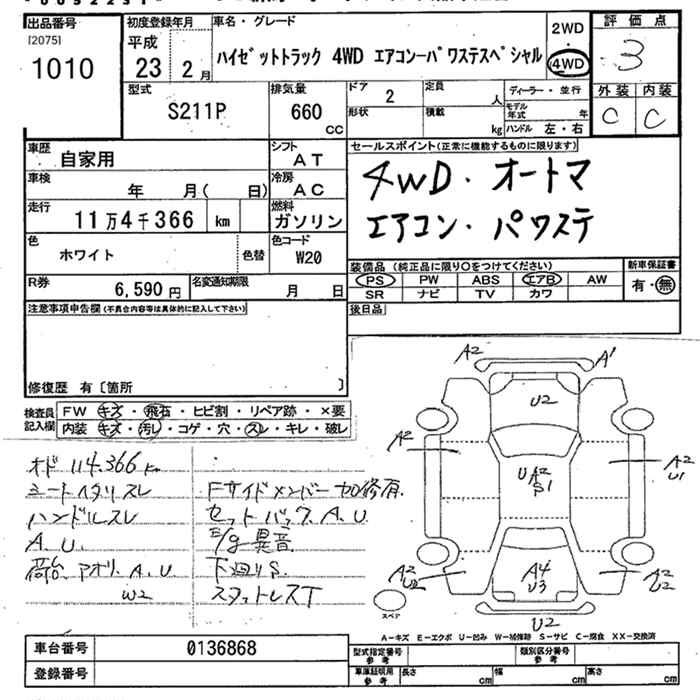 出品番号
[2075]
1010
初度登録年月
平成
23年 2月
車名・グレード
ハイゼットトラック 4WD エアコンーパワステスペシャル
2WD
4WD
評価点
3
外装 内装
C C
型式
S211P
排気量
660
CC
ドア
2
定員
人
形状
積載
kg
ディーラー・並行
モデル年式 年
ハンドル 左・右
車歴
自家用
シフト
AT
車検
年 月( 日)
冷房
AC
走行
11万4千366 km
燃料
ガソリン
色
ホワイト
色替
色コード
W20
R券
6,590円
名変通知期限
月 日
セールスポイント(正常に機能するものに限ります)
4WD・オートマ
エアコン・パワステ
装備品 (純正品に限り○をつけてください)
PS PW ABS エアB AW
SR ナビ TV カワ
新車保証書
有・無
後日品
注意事項申告欄(不具合内容等は具体的に記入して下さい)
修復歴 有〔箇所 〕
検査員記入欄
FW キズ・飛石・ヒビ割・リペア跡・×要
内装 キズ・汚レ・コゲ・穴・スレ・キレ・破レ
オド 114.366 km
シートヘタリスレ
ハンドルスレ
A.U.
荷台 アオリ.A.U
W2
Fサイドメンバー加修有.
セットバック.A.U.
E/g異音
下廻りS.
スタットレスT
A2 A1
U2
A2
A2
U1
U A2
S1
A2
U2
A4
U3
A2
U2
スペア
U2
A-キズ E-エクボ U-凹み W-補修跡 S-サビ C-腐食 XX-交換済
車台番号
0136868
登録番号
型式指定番号
参考
類別区分番号
参考
車庫証明用
参考
長さ cm
幅 cm
高さ cm